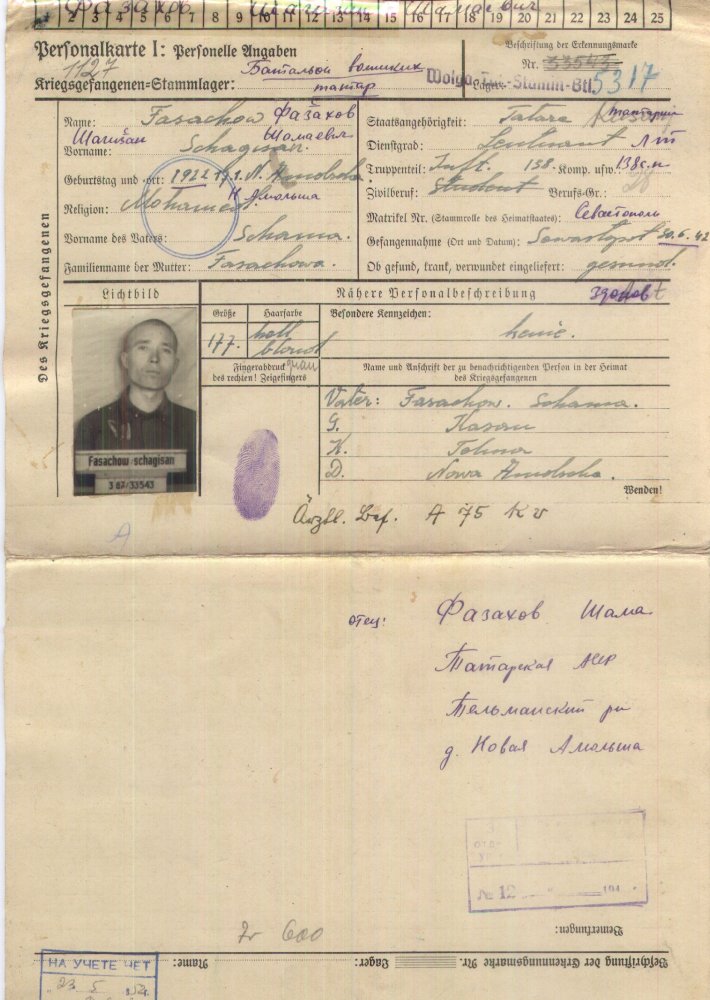 Фазахов Шагизан Шамаевич
1 2 3 4 5 6 7 8 9 10 11 12 13 14 15 16 17 18 19 20 21 22 23 24 25
Personalkarte I: Personelle Angaben
1127
Kriegsgefangenen-Stammlager: Батальон волжских татар
Beschriftung der Erkennungsmarke
Nr. 33543
Wolga-Tat.-Stamm-Btl. 5317
Lager:
Des Kriegsgefangenen
Name: Fasachow Фазахов
Шагизан Шамаевич
Vorname: Schagisan
Geburtstag und -ort: 1922 N. Amolscha
Н Амольша
Religion: Mohamed.
Vorname des Vaters: Schama.
Familienname der Mutter: Fasachowa.
Staatsangehörigkeit: Tatare татарин
Dienstgrad: Leutnant
Truppenteil: Inft. 138. Komp. usw. 138 с.п
Zivilberuf: Student Berufs-Gr.: 28
Matrikel Nr. (Stammrolle des Heimatstaates): Севастополь
Gefangennahme (Ort und Datum): Sewastopol 30.6.42
Ob gesund, krank, verwundet eingeliefert: gesund.
здоров
Lichtbild
Nähere Personalbeschreibung
Größe
Haarfarbe
Besondere Kennzeichen:
177.
hell blond
keine.
Fingerabdruck
des rechten! Zeigefingers
Name und Anschrift der zu benachrichtigenden Person in der Heimat
des Kriegsgefangenen
Vater: Fasachow. Schama.
G. Kasan
K. Telman
D. Nowa Amolscha.
Fasachow schagisan
3 82/33543
Wenden!
Ärztl. Bef. A 75 Kv
A
отец: Фазахов Шама
Татарская АССР
Тельманский рн
д. Новая Амольша
№ 12 194
Bemerkungen:
600
Beschriftung der Erkennungsmarke Nr.
Lager:
Name:
НА УЧЕТЕ ЧЕТ
23 5